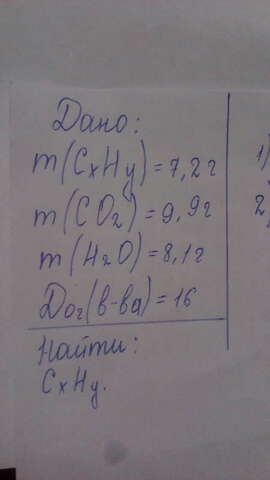 Дано:
m(CxHy)=7,2г
m(CO₂)=9,9г
m(H₂O)=8,1г
Do₂(в-ва)=16
Найти:
CxHy.
1)
2